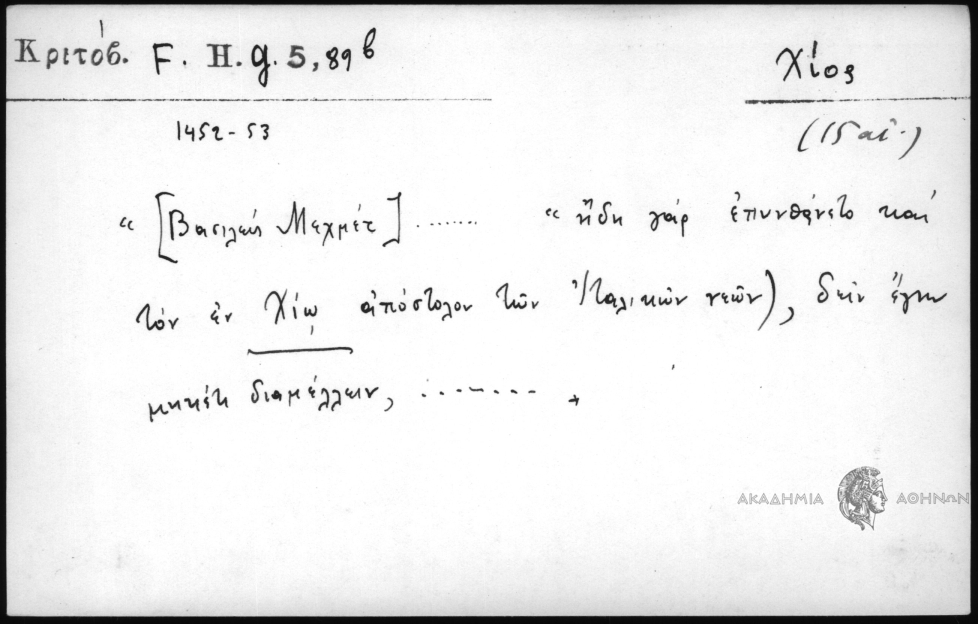 Κριτόβ. F. H. g. 5, 89 b
Χίος
1452-53
(15 αἰ.)
“ [Βασιλεύς Μεχμέτ] ....... “ ἤδη γάρ ἐπυνθάνετο καί
τόν ἐν Χίῳ ἀπόστολον τῶν Ἰταλικῶν νεῶν), δεῖν ἔγνω
μηκέτι διαμέλλειν, ........
ΑΚΑΔΗΜΙΑ ΑΘΗΝΩΝ